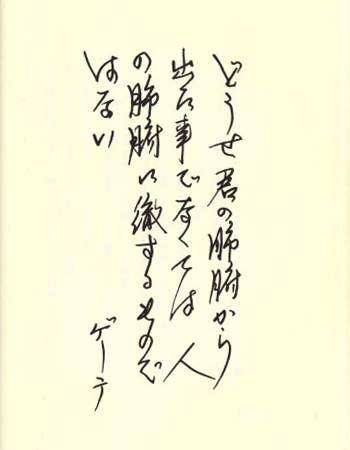 どうせ君の肺腑から
出た事でなくては人
の肺腑に徹するものぞ
はない
ゲーテ